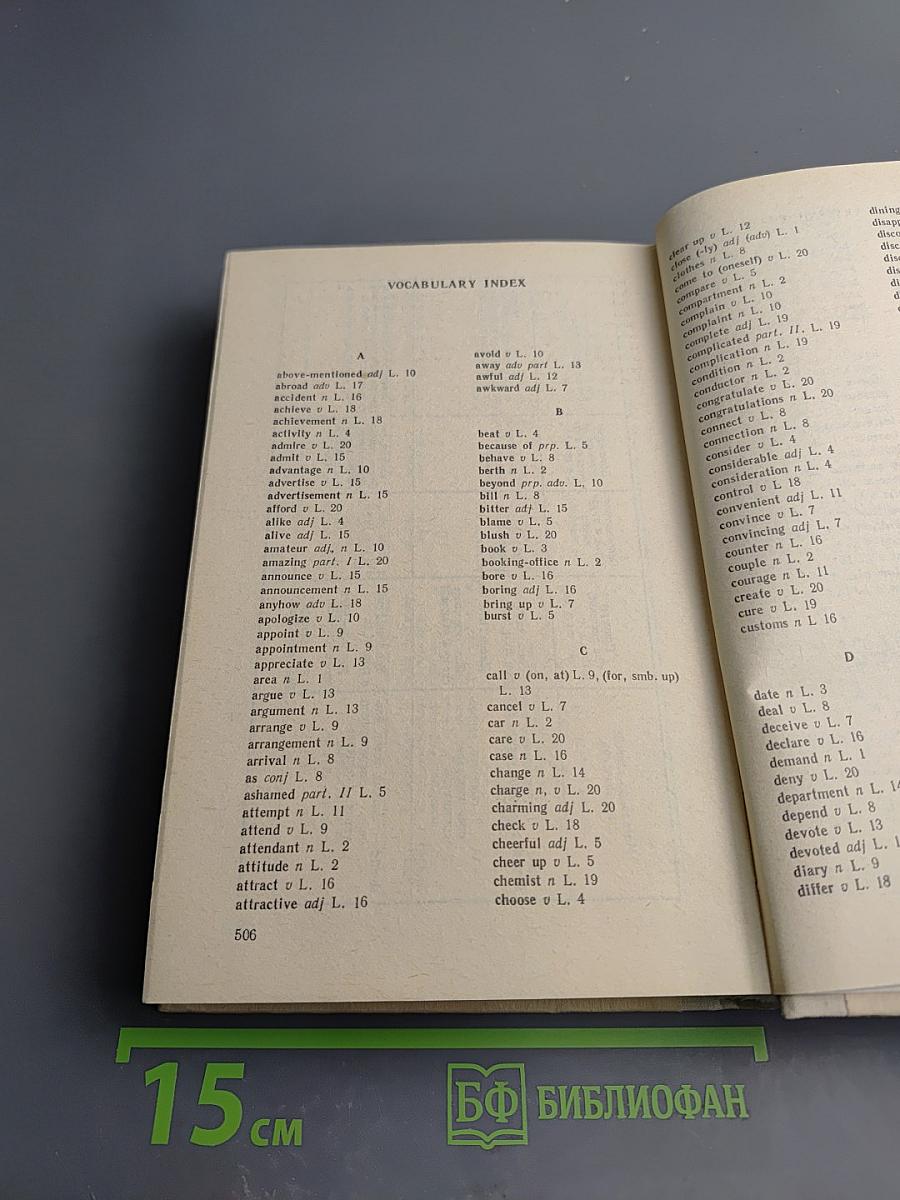 VOCABULARY INDEX
A
above-mentioned adj L. 10
abroad adv L. 17
accident n L. 16
achieve v L. 18
achievement n L. 18
activity n L. 4
admire v L. 20
admit v L. 15
advantage n L. 10
advertise v L. 15
advertisement n L. 15
afford v L. 20
alike adj L. 4
alive adj L. 15
amateur adj, n L. 10
amazing part. I L. 20
announce v L. 15
announcement n L. 15
anyhow adv L. 18
apologize v L. 10
appoint v L. 9
appointment n L. 9
appreciate v L. 13
area n L. 1
argue v L. 13
argument n L. 13
arrange v L. 9
arrangement n L. 9
arrival n L. 8
as conj L. 8
ashamed part. II L. 5
attempt n L. 11
attend v L. 9
attendant n L. 2
attitude n L. 2
attract v L. 16
attractive adj L. 16
506
avoid v L. 10
away adv part L. 13
awful adj L. 12
awkward adj L. 7
B
beat v L. 4
because of prp. L. 5
behave v L. 8
berth n L. 2
beyond prp. adv. L. 10
bill n L. 8
bitter adj L. 15
blame v L. 5
blush v L. 20
book v L. 3
booking-office n L. 2
bore v L. 16
boring adj L. 16
bring up v L. 7
burst v L. 5
C
call v (on, at) L. 9, (for, smb. up)
L. 13
cancel v L. 7
car n L. 2
care v L. 20
case n L. 16
change n L. 14
charge n, v L. 20
charming adj L. 20
check v L. 18
cheerful adj L. 5
cheer up v L. 5
chemist n L. 19
choose v L. 4
clear up v L. 12
close (-ly) adj (adv) L. 1
clothes n L. 8
come to (oneself) v L. 20
compare v L. 5
compartment n L. 2
complain v L. 10
complaint n L. 10
complete adj L. 19
complicated part. II. L. 19
complication n L. 19
condition n L. 2
conductor n L. 2
congratulate v L. 20
congratulations n L. 20
connect v L. 8
connection n L. 8
consider v L. 4
considerable adj L. 4
consideration n L. 4
control v L 18
convenient adj L. 11
convince v L. 7
convincing adj L. 7
counter n L. 16
couple n L. 2
courage n L. 11
create v L. 20
cure v L. 19
customs n L 16
D
date n L. 3
deal v L. 8
deceive v L. 7
declare v L. 16
demand n L. 1
deny v L. 20
department n L. 14
depend v L. 8
devote v L. 13
devoted adj L. 1
diary n L. 9
differ v L. 18
dining
disapp
disco
disc
dis
dis
di
d
15 см
БФ БИБЛИОФАН